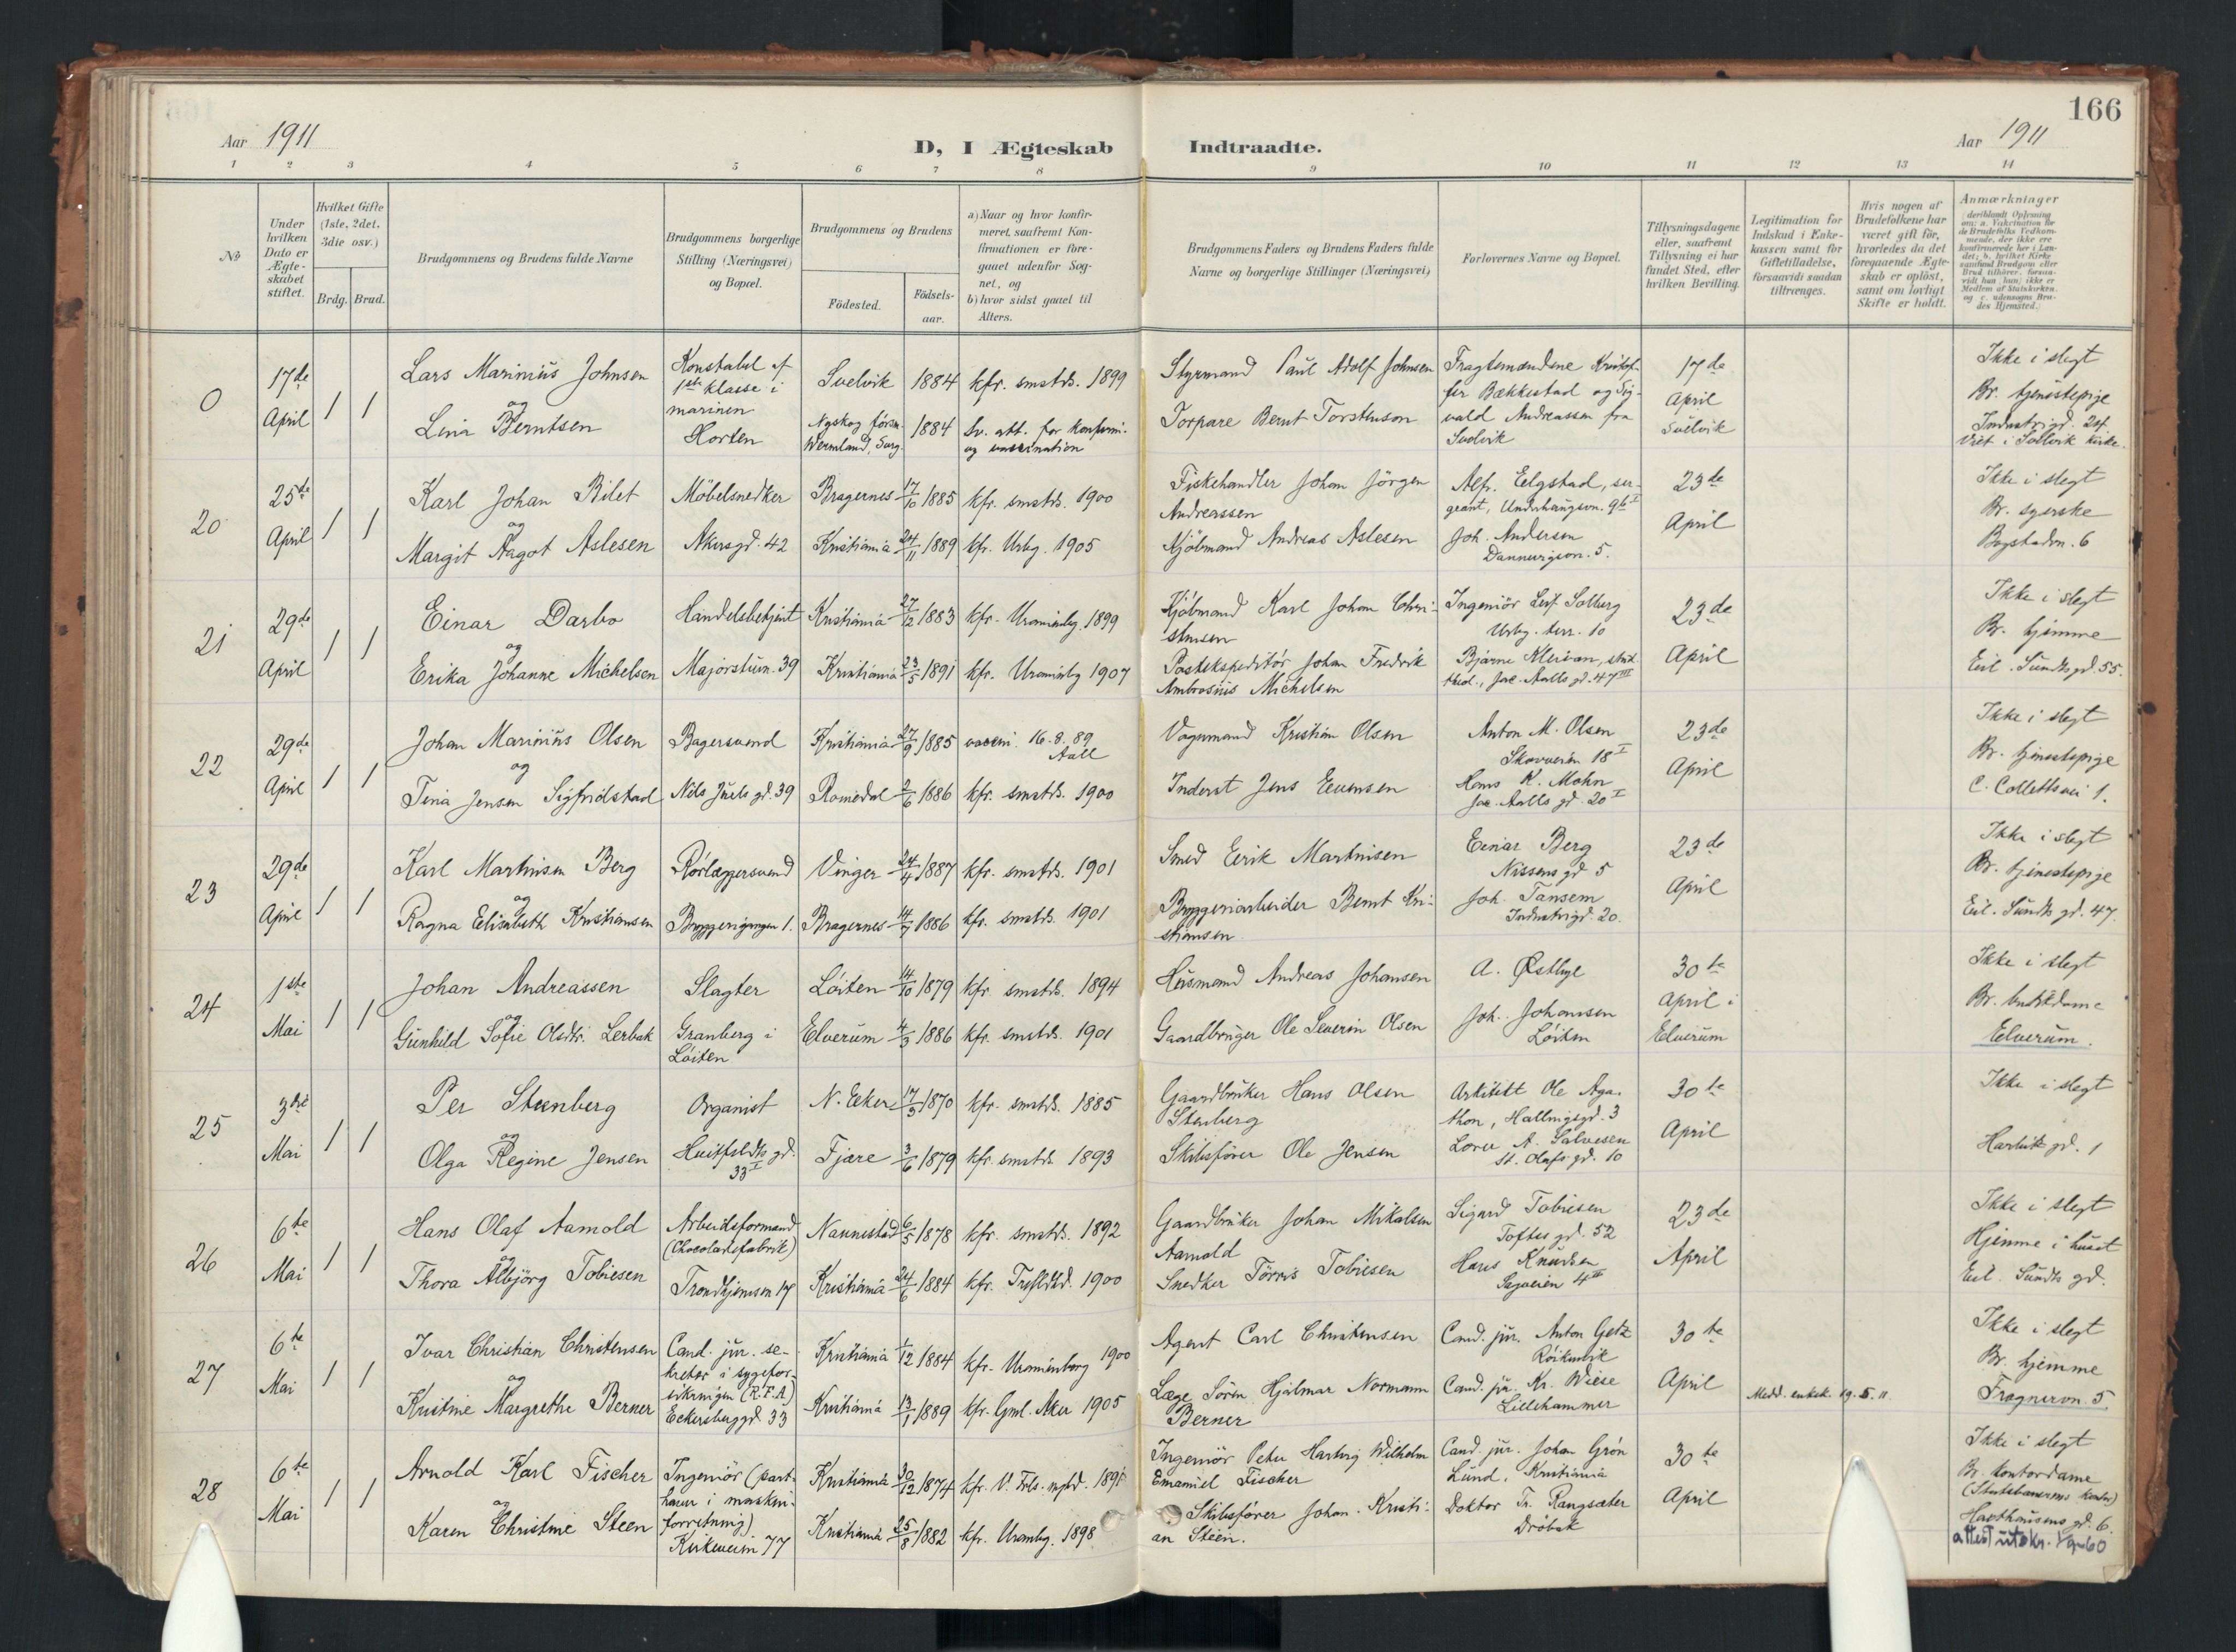 166
Aar 1911
D, I Ægteskab Indtraadte.
Aar 1911
1 2 3 4 5 6 7 8 9 10 11 12 13 14
No
Under
hvilken
Dato er
Ægte-
skabet
stiftet.
Hvilket Gifte
(1ste, 2det,
3die osv.)
Brdg. Brud.
Brudgommens og Brudens fulde Navne
Brudgommens borgerlige
Stilling (Næringsvei)
og Bopæl.
Brudgommens og Brudens
Födested.
Födsels-
aar.
a) Naar og hvor konfir-
meret, saafremt Kon-
firmationen er fore-
gaaet udenfor Sog-
net, og
b) hvor sidst gaaet til
Alters.
Brudgommens Faders og Brudens Faders fulde
Navne og borgerlige Stillinger (Næringsvei)
Forlovernes Navne og Bopæl.
Tillysningsdagene
eller, saafremt
Tillysning ei har
fundet Sted, efter
hvilken Bevilling.
Legitimation for
Indskud i Enke-
kassen samt for
Giftetilladelse,
forsaavidt saadan
tiltrænges.
Hvis nogen af
Brudefolkene har
været gift før,
hvorledes da det
foregaaende Ægte-
skab er oplöst,
samt om lovligt
Skifte er holdt.
Anmærkninger
(deriblandt Oplysning
om: a. Vakcination for
de Brudefolks Vedkom-
mende, der ikke ere
konfirmerede her i Lan-
det; b. hvilket Kirke-
samfund Brudgom eller
Brud tilhører, forsaa-
vidt han (hun) ikke er
Medlem af Statskirken,
og c. udensogns Bru-
des Hjemsted.)
0
17de
April
1 1
Lars Marinius Johnsen
og
Lina Berntsen
Konstabel af
1ste klasse i
marinen
Horten
Svelvik 1884
Nyskog förs.
Wermland, Sverg. 1884
kfr. smstds. 1899
Sv. att. for konfirm.
og vaccination
Styrmand Paul Adolf Johnsen
Torpare Bernt Torstenson
Fragtemændene Kristof-
fer Bækkestad og Sig-
vald Andreassen fra
Svelvik
17de
April
Svelvik
Ikke i slegt
Br. tjenestepige
Industrigd. 24.
Viet i Svelvik kirke.
20
25de
April
1 1
Karl Johan Bilet
og
Margit Aagot Aslesen
Möbelsnedker
Akersgd. 42
Bragernes 17/10 1885
Kristiania 24/11 1889
kfr. smstds. 1900
kfr. Urbg. 1905
Fiskehandler Johan Jörgen
Andreassen
Kjöbmand Andreas Aslesen
Alfr. Eelgstad, ser-
geant, Underhaugsvn. 9b I
Joh. Andersen
Dannevigsvn. 5.
23de
April
Ikke i slegt
Br. syerske
Bogstadvn. 6
21
29de
April
1 1
Einar Darbo
og
Erika Johanne Michelsen
Handelsbetjent
Majorstuvn. 39
Kristiania 27/12 1883
Kristiania 23/5 1891
kfr. Uranienbg. 1899
kfr. Uranienbg 1907
Kjöbmand Karl Johan Chri-
stensen
Postekspeditör Johan Fredrik
Ambrosius Michelsen
Ingeniör Leif Solberg
Urbg. terr. 10
Bjarne Klerivan, stud.
med., Jac. Aalls gd. 47 III
23de
April
Ikke i slegt
Br. hjemme
Eil. Sundts gd. 55.
22
29de
April
1 1
Johan Marinius Olsen
og
Tina Jensen Sigfridstad
Bagersvend
Nils Juels gd. 39
Kristiania 27/9 1885
Romedal 2/6 1886
vaccin. 16.8.89
Aall
kfr. smstds. 1900
Vognmand Kristian Olsen
Inderst Jens Evensen
Anton M. Olsen
Skovveien 18 I
Hans K. Mohn
Jac. Aalls gd. 20 I
23de
April
Ikke i slegt
Br. tjenestepige
C. Colletts vei 1.
23
29de
April
1 1
Karl Martinsen Berg
og
Ragna Elisabeth Kristiansen
Rörlæggersvend
Bryggerigangen 1.
Vinger 24/4 1887
Bragernes 14/7 1886
kfr. smstds. 1901
kfr. smstds. 1901
Smed Eirik Martinisen
Bryggeriarbeider Bernt Kri-
stiansen.
Einar Berg
Nissens gd 5
Joh. Tansem
Industrigd. 20.
23de
April
Ikke i slegt
Br. tjenestepige
Eil. Sundts gd. 47.
24
1ste
Mai
1 1
Johan Andreassen
og
Gunhild Sofie Olsdtr. Lerbak
Slagter
Granberg i
Löiten
Löiten 14/10 1879
Elverum 4/3 1886
kfr. smstds. 1894
kfr. smstds. 1901
Husmand Andreas Johansen
Gaardbruger Ole Severin Olsen
A. Østbye
Joh. Johansen
Löiten
30te
April i
Elverum
Ikke i slegt
Br. butikdame
Elverum.
25
3die
Mai
1 1
Per Steenberg
og
Olga Regine Jensen
Organist
Huitfeldts gd.
33 I
N. Eeker 17/5 1870
Fjære 3/6 1879
kfr. smstds. 1885
kfr. smstds. 1893
Gaardbruker Hans Olsen
Stenberg
Skibsförer Ole Jensen
Arkitekt Ole Aga-
thon, Hallingsgd. 3
A. Salvesen
St. Olafs gd. 10
30te
April
Ikke i slegt
gd. 1
26
6te
Mai
1 1
Hans Olaf Aamold
og
Thora Albjörg Tobiesen
Arbeidsformand
(Chocoladefabrik)
Trondhjemsvn 17
Nannestad 6/5 1878
Kristiania 24/6 1884
kfr. smstds. 1892
kfr. 1900
Gaardbruker Johan Mikalsen
Aamold
Snedker Törris Tobiesen
Sigurd Tobiesen
Toftes gd. 52
Hans Knudsen
4 III
23de
April
Ikke i slegt
Hjemme i huset
Eil. Sundts gd.
27
6te
Mai
1 1
Ivar Christian Christensen
og
Kristine Margrethe Berner
Cand. jur. se-
kretær i sygefor-
sikringen (R.F.A)
Eckersberggd 33
Kristiania 1/12 1884
Kristiania 13/1 1889
kfr. Uranienborg 1900
kfr. Gml. Aker 1905
Agent Carl Christensen
Læge Sören Hjalmar Normann
Berner
Cand. jur. Anton Getz
Röikenvik
Cand. jur. Kr. Wiese
Lillehammer
30te
April
Medd. enkek. 19.5.11.
Ikke i slegt
Br. hjemme
Frognervn. 5.
28
6te
Mai
1 1
Arnold Karl Fischer
og
Karen Christine Steen
Ingeniör (part-
haver i maskin-
forretning)
Kirkeveien 77
Kristiania 30/12 1874
Kristiania 25/8 1882
kfr. V. Frls. mghd.
kfr. Uranbg. 1898
Ingeniör Peter Hartvig Wilhelm
Emanuel Fischer
Skibsförer Johan Kristi-
an Steen.
Cand. jur. Johan Grön
Lund, Kristiania
Doktor Tr. Rangsæter
Dröbak
30te
April
Ikke i slegt
Br. Kontordame
(Statsbanernes kontor)
Hansens gd. 6.
attest utskr. 1/9-60